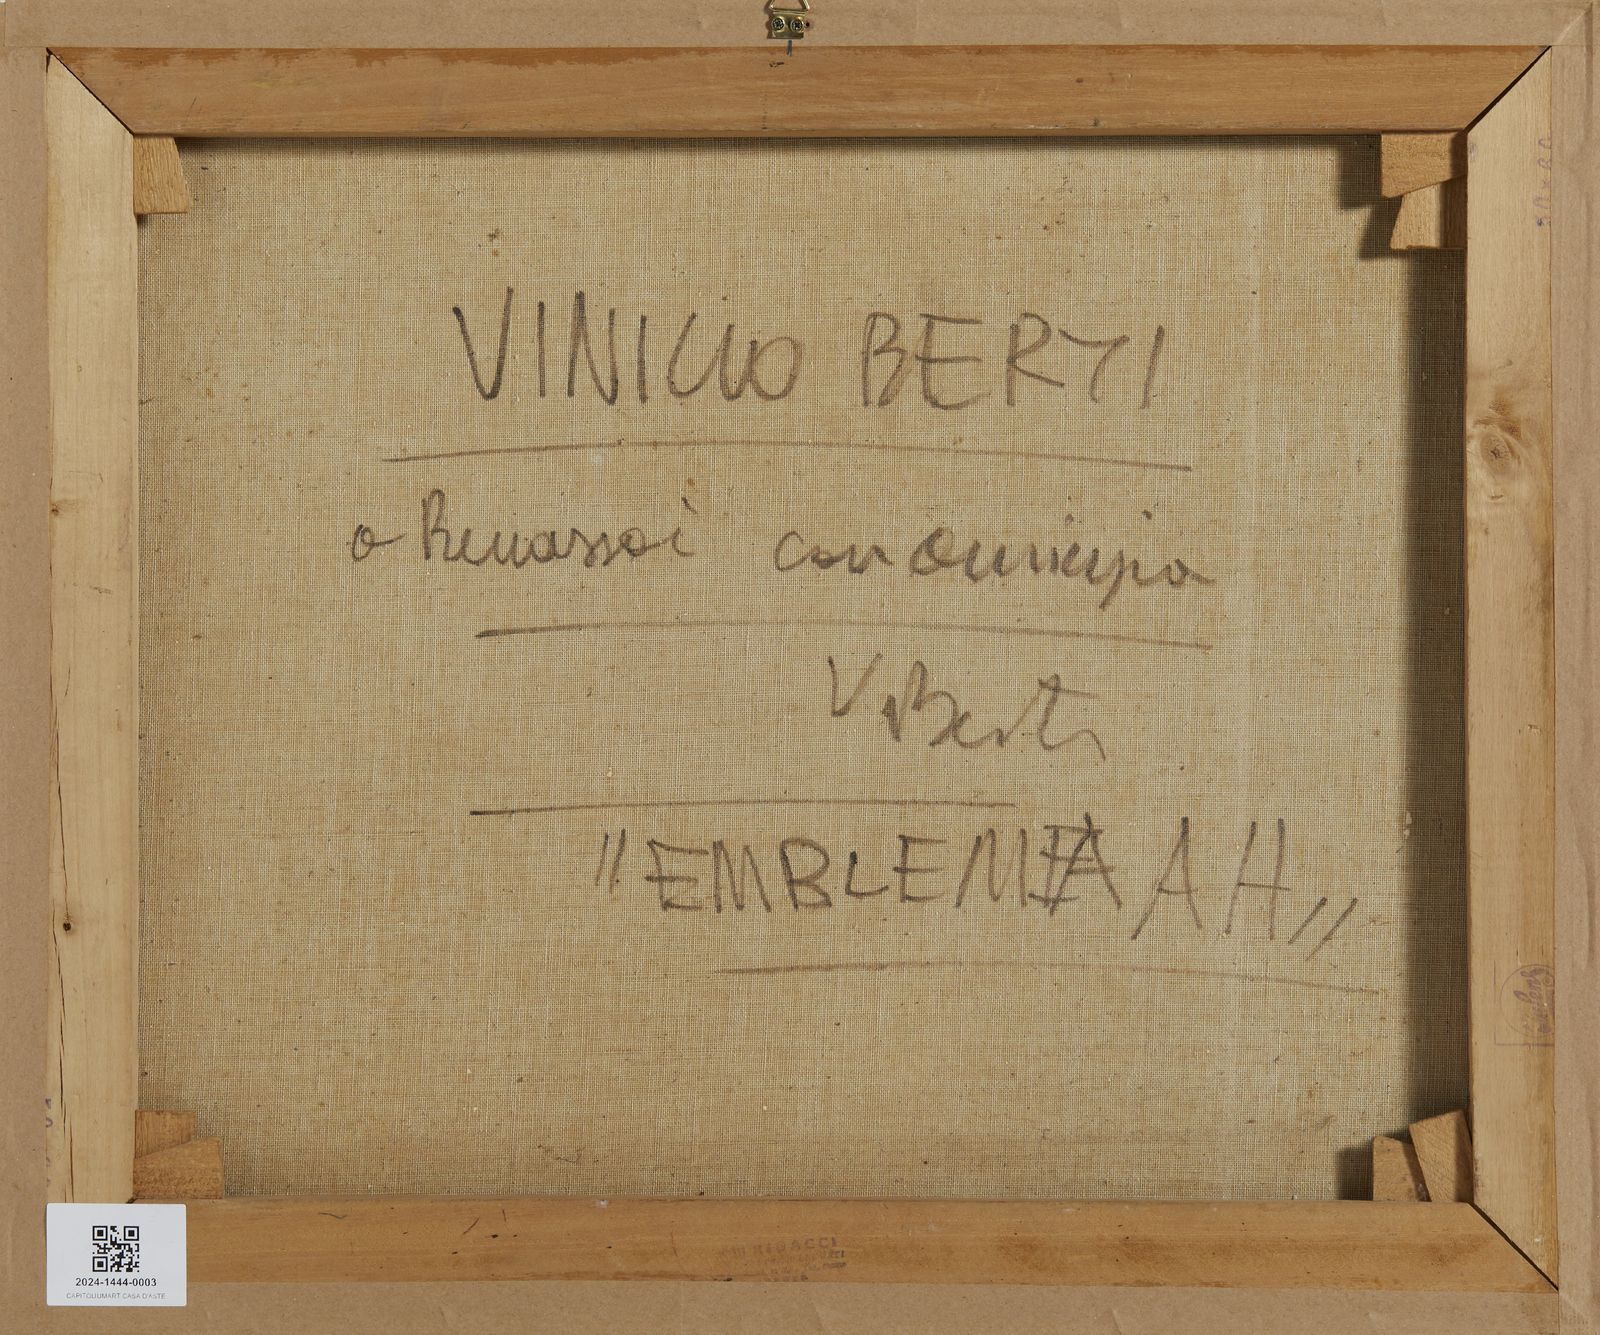 VINICIO BERTI
a Renassoi con amicizia
V Berti
"EMBLEMA AH"
2024-1444-0003
CAPITOLIUMART CASA D'ASTE